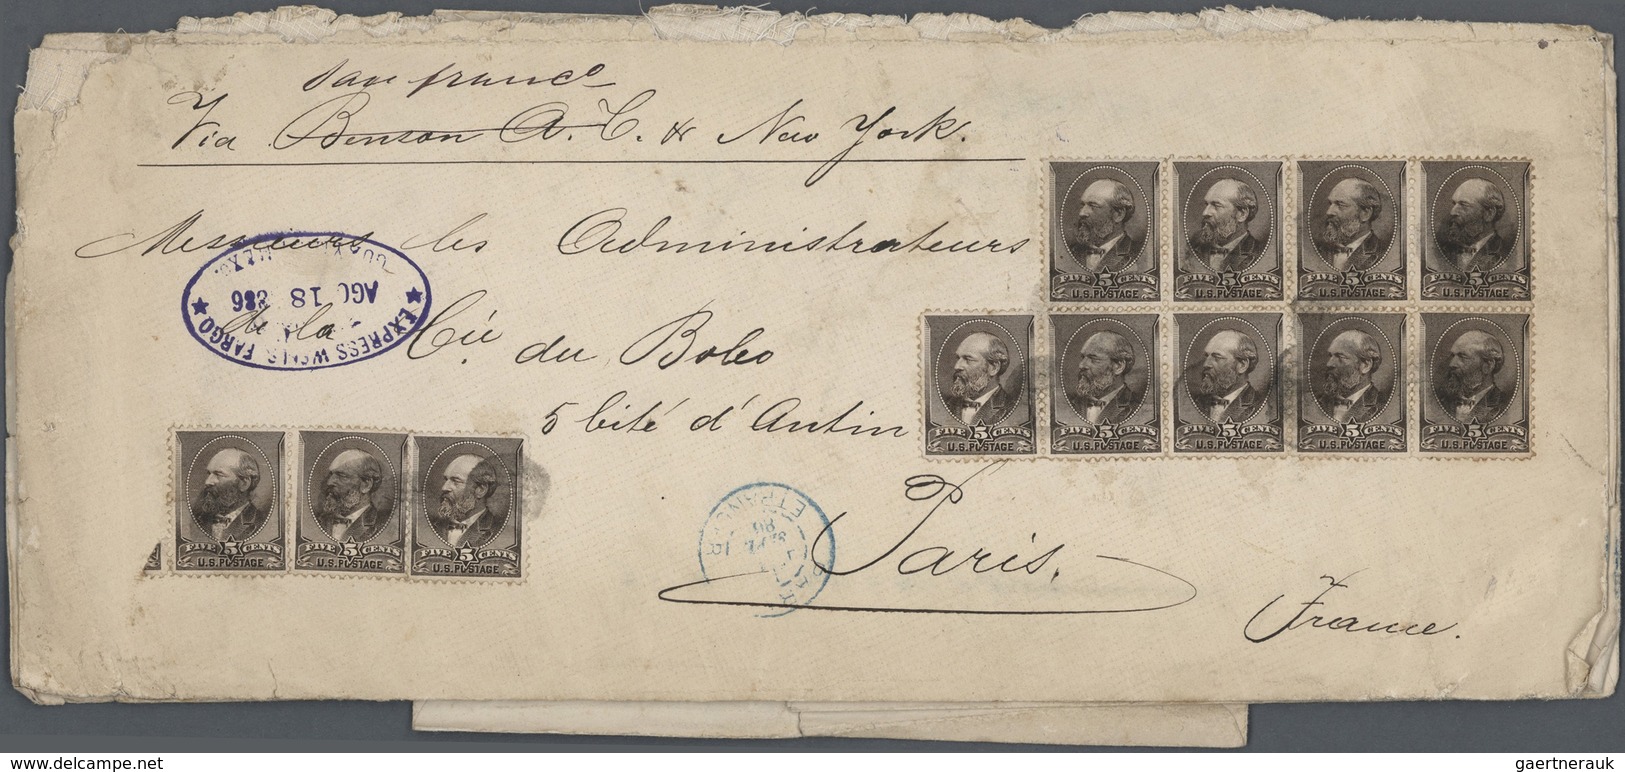 San Franco
Via Benson A. T. & New York.
Messieurs les Administrateurs
de la Cie du Boleo
5 Cité d'Antin
Paris.
France.
EXPRESS WELLS FARGO
AGO 18 886
GUAYMAS MEX
ETRANGER
86
FIVE 5 CENTS
U.S. POSTAGE
FIVE 5 CENTS
U.S. POSTAGE
FIVE 5 CENTS
U.S. POSTAGE
FIVE 5 CENTS
U.S. POSTAGE
FIVE 5 CENTS
U.S. POSTAGE
FIVE 5 CENTS
U.S. POSTAGE
FIVE 5 CENTS
U.S. POSTAGE
FIVE 5 CENTS
U.S. POSTAGE
FIVE 5 CENTS
U.S. POSTAGE
FIVE 5 CENTS
U.S. POSTAGE
FIVE 5 CENTS
U.S. POSTAGE
FIVE 5 CENTS
U.S. POSTAGE
www.delcampe.net
gaertnerauk